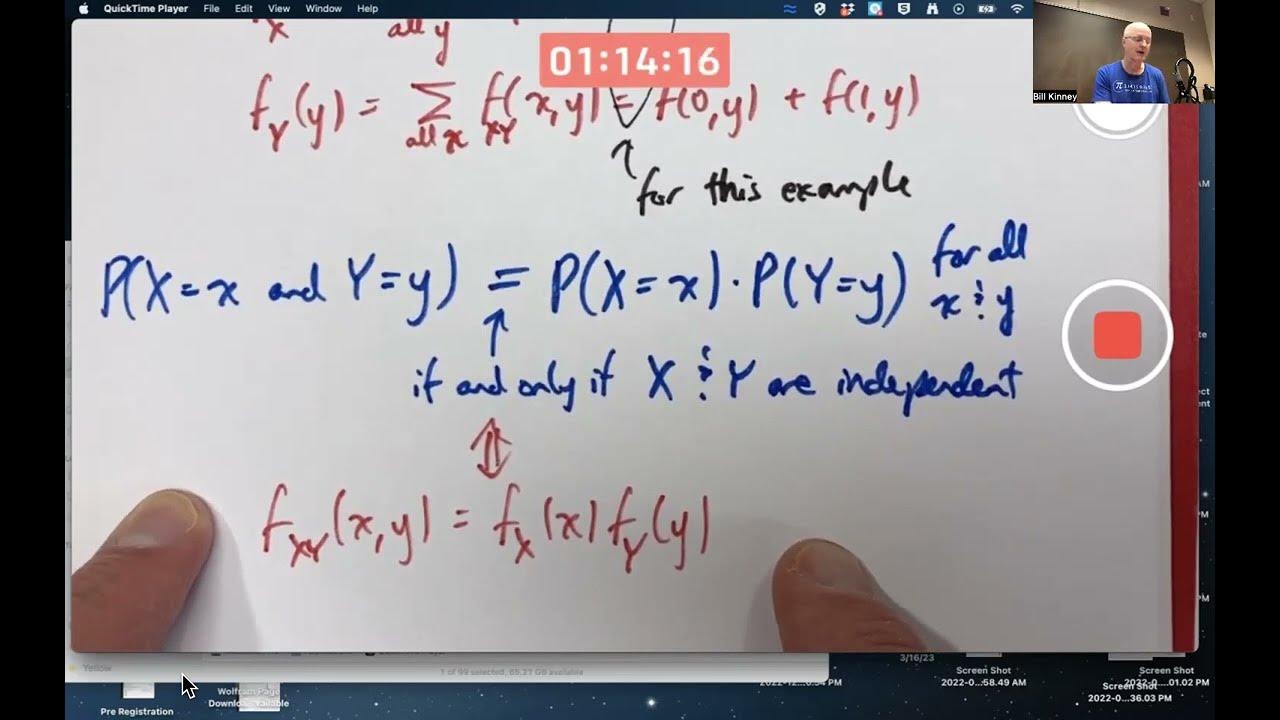 QuickTime Player File Edit View Window Help
x all y
01:14:16
Bill Kinney
f_Y(y) = Σ_{all x} f_{XY}(x,y) = f(0,y) + f(1,y)
for this example
P(X=x and Y=y) = P(X=x)·P(Y=y) for all
x & y
if and only if X & Y are independent
f_{XY}(x,y) = f_X(x) f_Y(y)
Yellow
1 of 99 selected, 65.27 GB available
3/16/23
Screen Shot
2022-0...58.49 AM
Screen Shot
2022-0...01.02 PM
Screen Shot
2022-0...36.03 PM
Pre Registration
Wolfram Page